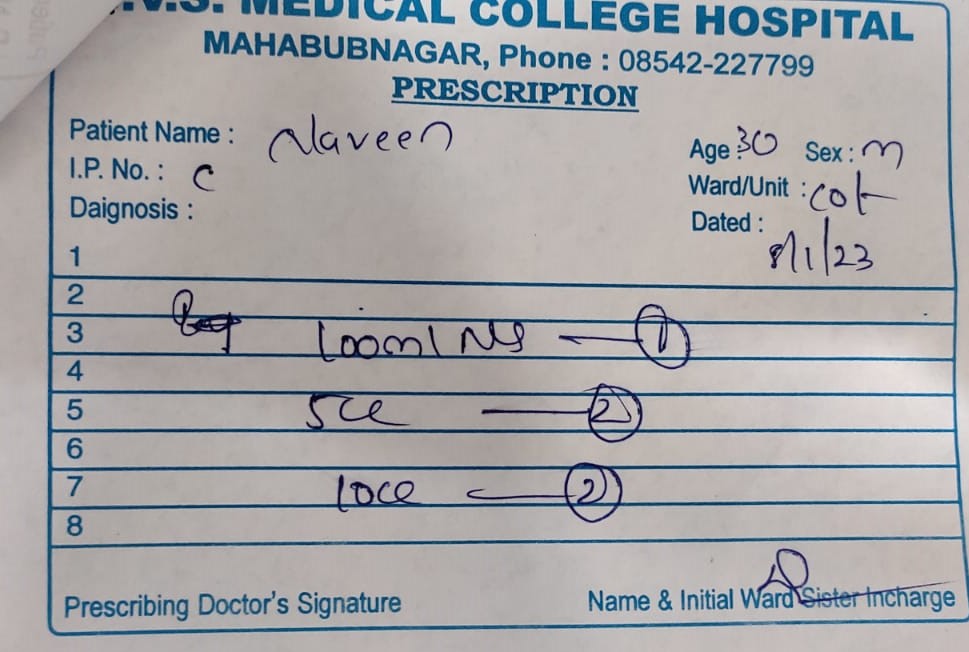 .V.S. MEDICAL COLLEGE HOSPITAL
MAHABUBNAGAR, Phone : 08542-227799
PRESCRIPTION
Patient Name : Naveen
Age : 30 Sex : m
I.P. No. : C
Ward/Unit : cot
Daignosis :
Dated : 8/1/23
1
2
3 100ml NS — 1
4
5 5cc — 2
6
7 10cc — 2
8
Prescribing Doctor's Signature
Name & Initial Ward Sister Incharge